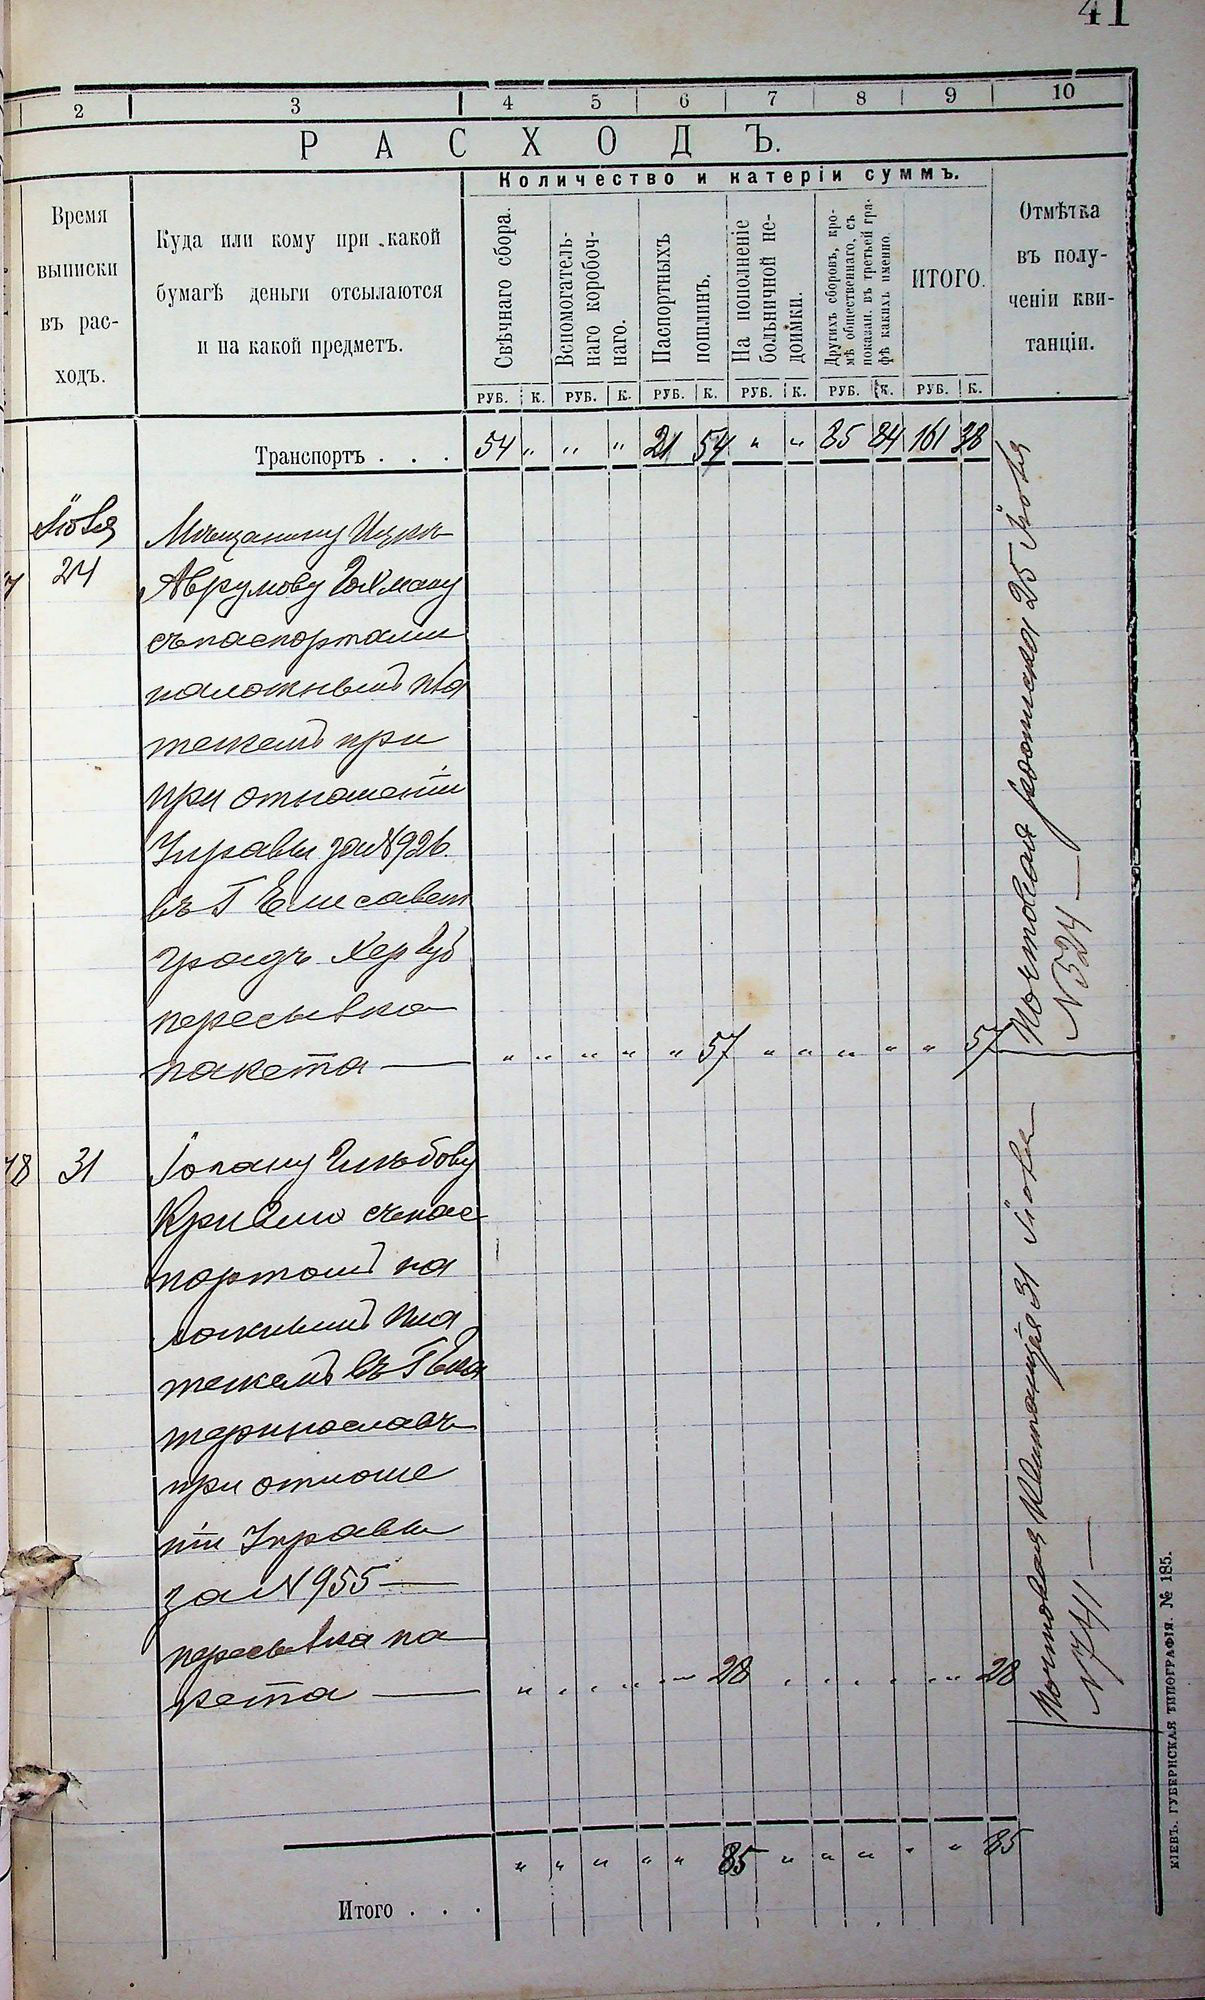 41
2 3 4 5 6 7 8 9 10
РАСХОДЪ.
Количество и катерій суммъ.
Время
выписки
въ рас-
ходъ.
Куда или кому при какой
бумагѣ деньги отсылаются
и на какой предметъ.
Свѣчнаго сбора.
Вспомогатель-
наго коробоч-
наго.
Паспортныхъ
пошлинъ.
На пополненіе
больничной не-
доимки.
Другихъ сборовъ, кро-
мѣ общественнаго, съ
показан. въ третьей гра-
фѣ какихъ именно.
ИТОГО.
Отмѣтка
въ полу-
ченіи кви-
танціи.
РУБ. К. РУБ. К. РУБ. К. РУБ. К. РУБ. К. РУБ. К.
Транспортъ . . . 54 „ „ „ 21 54 „ „ 85 84 161 38
24
Мѣщанину
Аврумову
съ паспортами
наложнымъ пла
тежемъ при
при отношеніи
Управы за №926.
въ Г Елисавет
градъ Хер Губ
пересылка
пакета — „ „ „ „ „ 57 „ „ „ „ „ 57
Почтовая росписка 25
№524 —
31
Глѣбову
съ пас
портомъ на
ложнымъ пла
тежемъ въ Г Ека
теринославъ
при отноше
ніи Управы
за №955 —
пересылка па
кета — „ „ „ „ „ 28 „ „ „ „ „ 28
Почтовая Квитанція 31
№741 —
„ „ „ „ „ 85 „ „ „ „ „ 85
Итого . . .
КІЕВЪ. ГУБЕРНСКАЯ ТИПОГРАФІЯ. № 185.